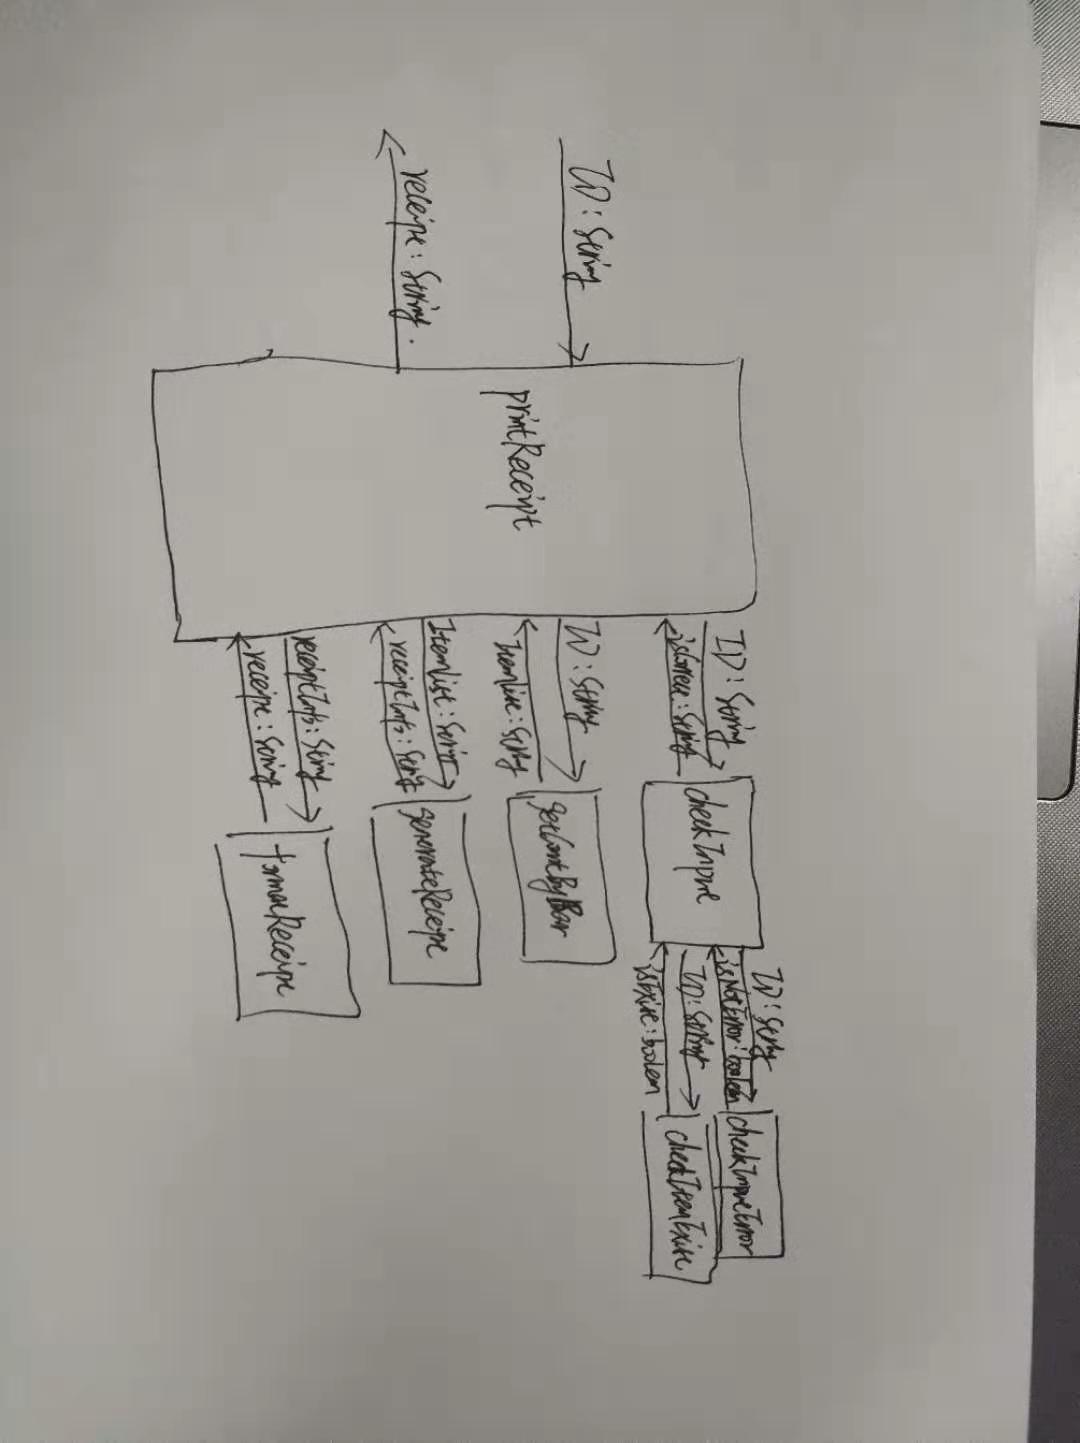 ID: String
receipt: String.
printReceipt
ID: String
isCorrect: String
checkInput
ID: String
isNotError: boolean
checkInputError
ID: String
isExist: boolem
checkItemExist
ID: String
ItemList: String
getContByBar
ItemList: String
receiptInfo: String
generateReceipt
receiptInfo: String
receipt: String
formatReceipt